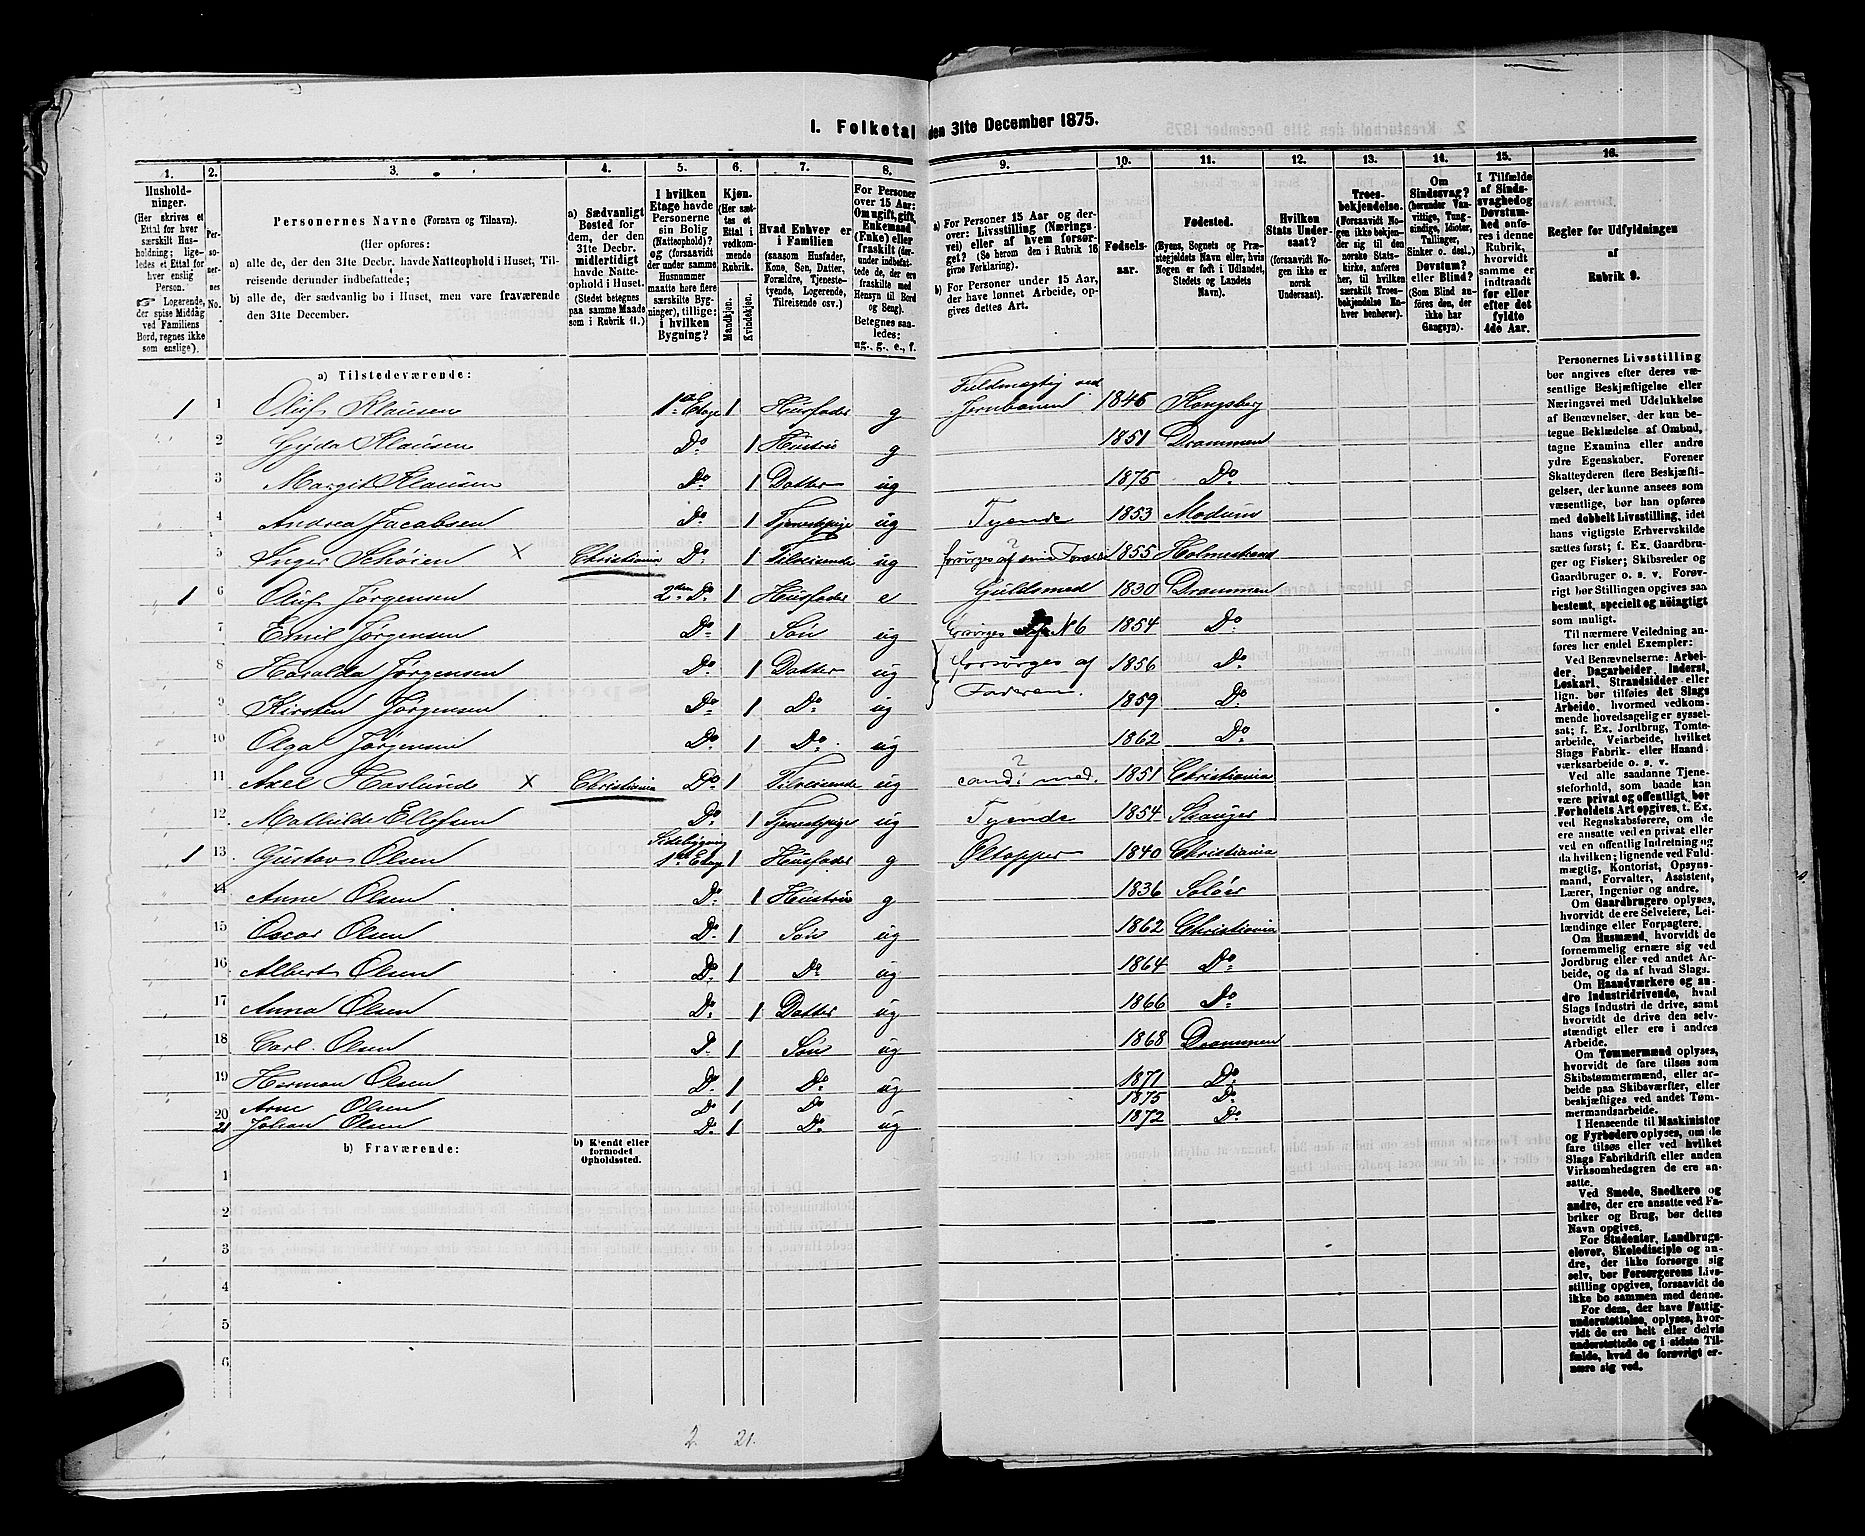 1. Folketal den 31te December 1875.
1. 2. 3. 4. 5. 6. 7. 8. 9. 10. 11. 12. 13. 14. 15. 16.
Husholdninger.
(Her skrives et Ettal for hver særskilt Husholdning; ligeledes et Ettal for hver enslig Person.
☞ Logerende, der spise Middag ved Familiens Bord, regnes ikke som enslige).
Personernes No.
Personernes Navne (Fornavn og Tilnavn).
(Her opføres:
a) alle de, der den 31te Decbr. havde Natteophold i Huset, Tilreisende derunder indbefattede;
b) alle de, der sædvanlig bo i Huset, men vare fraværende den 31te December.
a) Sædvanligt Bosted for dem, der den 31te Decbr. midlertidigt havde Natteophold i Huset.
(Stedet betegnes paa samme Maade som i Rubrik 11.)
I hvilken Etage havde Personerne sin Bolig (Natteophold)? og (forsaavidt der under samme Husnummer maatte høre flere særskilte Bygninger), tillige: i hvilken Bygning?
Kjøn.
(Her sættes et Ettal i vedkommende Rubrik.
Mandkjøn.
Kvindekjøn.
Hvad Enhver er i Familien
(saasom Husfader, Kone, Søn, Datter, Forældre, Tjenestetyende, Logerende, Tilreisende osv.)
For Personer over 15 Aar: Om ugift, gift, Enkemand (Enke) eller fraskilt (derunder indbefattede de, der ere fraskilte med Hensyn til Bord og Seng).
Betegnes saaledes: ug., g., e., f.
a) For Personer 15 Aar og derover: Livsstilling (Næringsvei) eller af hvem forsørget? (Se herom den i Rubrik 16 givne Forklaring).
b) For Personer under 15 Aar, der have lønnet Arbeide, opgives dettes Art.
Fødselsaar.
Fødested.
(Byens, Sognets og Præstegjeldets Navn, eller, hvis Nogen er født i Udlandet, Stedets og Landets Navn).
Hvilken Stats Undersaat?
(forsaavidt Nogen ikke er norsk Undersaat).
Troesbekjendelse.
(Forsaavidt Nogen ikke bekjender sig til den norske Statskirke, anføres her, til hvilket særskilt Troesbekjendelse Enhver henhører).
Om Sindssvag? (herunder Vanvittige, Tungsindige, Idioter, Tullinger, Sinker o. desl.). Døvstum? eller Blind? (Som Blind anføres den, der ikke har Gangsyn).
I Tilfælde af Sindssvaghed og Døvstumhed anføres i denne Rubrik, hvorvidt samme er indtraadt før eller efter det fyldte 4de Aar.
Regler for Udfyldningen af Rubrik 9.
a) Tilstedeværende:
1 1 Oluf Klausen 1ste Etage 1 Husfader g Fuldmægtig ved Jernbanen 1846 Kongsberg
2 Gyda Klausen Do 1 Hustru g 1851 Drammen
3 Margit Klausen Do 1 Datter ug 1875 Do
4 Andrea Jacobsen Do 1 Tjenestepige ug Tyende 1853 Modum
5 Inger Schøien X Christiania Do 1 Tilreisende ug forsørges af sine Forældre 1855 Holmestrand
1 6 Oluf Jørgensen 2den Do 1 Husfader e Guldsmed 1830 Drammen
7 Emil Jørgensen Do 1 Søn ug forsørges N 6 1854 Do
8 Haralda Jørgensen Do 1 Datter ug forsørges af 1856 Do
9 Kirsten Jørgensen Do 1 Do ug Faderen. 1859 Do
10 Olga Jørgensen Do 1 Do ug 1862 Do
11 Axel Haslund X Christiania Do 1 Tilreisende ug cand: med. 1851 Christiania
12 Mathilde Ellefsen Do 1 Tjenestepige ug Tyende 1854 Skauger
1 13 Gustav Olsen Sidebygning 1ste Etage 1 Husfader g Øltapper 1840 Christiania
14 Anne Olsen Do 1 Hustru g 1836 Soløer
15 Oscar Olsen Do 1 Søn ug 1862 Christiania
16 Albert Olsen Do 1 Do ug 1864 Do
17 Anna Olsen Do 1 Datter ug 1866 Do
18 Carl Olsen Do 1 Søn ug 1868 Drammen
19 Herman Olsen Do 1 Do ug 1871 Do
20 Arne Olsen Do 1 Do 1875 Do
21 Johan Olsen Do 1 Do ug 1872 Do
b) Fraværende:
b) Kjendt eller formodet Opholdssted.
1
2
3
4
5
6
Personernes Livsstilling bør angives efter deres væsentlige Beskjæftigelse eller Næringsvei med Udelukkelse af Benævnelser, der kun betegne Beklædelse af Ombud, tagne Examina eller andre ydre Egenskaber. Forener Skatteyderen flere Beskjæftigelser, der kunne ansees som væsentlige, bør han opføres med dobbelt Livsstilling, idet hans vigtigste Erhvervskilde sættes først; f. Ex. Gaardbruger og Fisker; Skibsreder og Gaardbruger o. s. v. Forøvrigt bør Stillingen opgives saa bestemt, specielt og nøiagtigt som muligt.
Til nærmere Veiledning anføres her endel Exempler:
Ved Benævnelserne: Arbeider, Dagarbeider, Inderst, Løskarl, Strandsidder eller lign. bør tilføies det Slags Arbeide, hvormed vedkommende hovedsagelig er sysselsat; f. Ex. Jordbrug, Tomtearbeide, Veiarbeide, hvilket Slags Fabrik- eller Haandværksarbeide o. s. v.
Ved alle saadanne Tjenesteforhold, som baade kan være privat og offentligt, bør Forholdets Art opgives, t. Ex. ved Regnskabsførere, om de ere ansatte ved en privat eller ved en offentlig Indretning og da hvilken; lignende ved Fuldmægtig, Kontorist, Opsynsmand, Forvalter, Assistent, Lærer, Ingeniør og andre.
Om Gaardbrugere oplyses, hvorvidt de ere Selveiere, Leilændinge eller Forpagtere.
Om Husmænd, hvorvidt de fornemmelig ernære sig ved Jordbrug eller ved andet Arbeide, og da af hvad Slags.
Om Haandværkere og andre Industridrivende, hvad Slags Industri de drive, samt hvorvidt de drive den selvstændigt eller ere i andres Arbeide.
Om Tømmermænd oplyses, hvorvidt de fare tilsøs som Skibstømmermænd, eller arbeide paa Skibsværfter, eller beskjæftiges ved andet Tømmermandsarbeide.
I Henseende til Maskinister og Fyrbødere oplyses, om de fare tilsøs eller ved hvilket Slags Fabrikdrift eller anden Virksomhedsgren de ere ansatte.
Ved Smede, Snedkere og andre, der ere ansatte ved Fabriker og Brug, bør dettes Navn opgives.
For Studenter, Landbrugselever, Skoledisciple og andre, der ikke forsørge sig selv, bør Forsørgerens Livsstilling opgives, forsaavidt de ikke bo sammen med denne.
For dem, der have Fattigunderstøttelse, oplyses, hvorvidt de ere helt eller delvis understøttede og i sidste Tilfælde, hvad de forøvrigt ernære sig ved.
2 21.